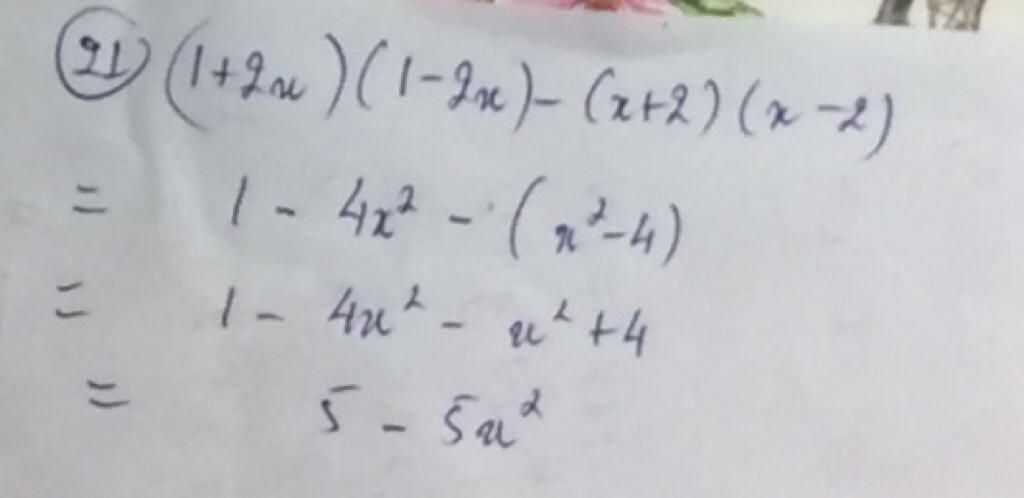 21 (1+2x)(1-2x)-(x+2)(x-2)
= 1 - 4x² - (x²-4)
= 1 - 4x² - x² +4
= 5 - 5x²